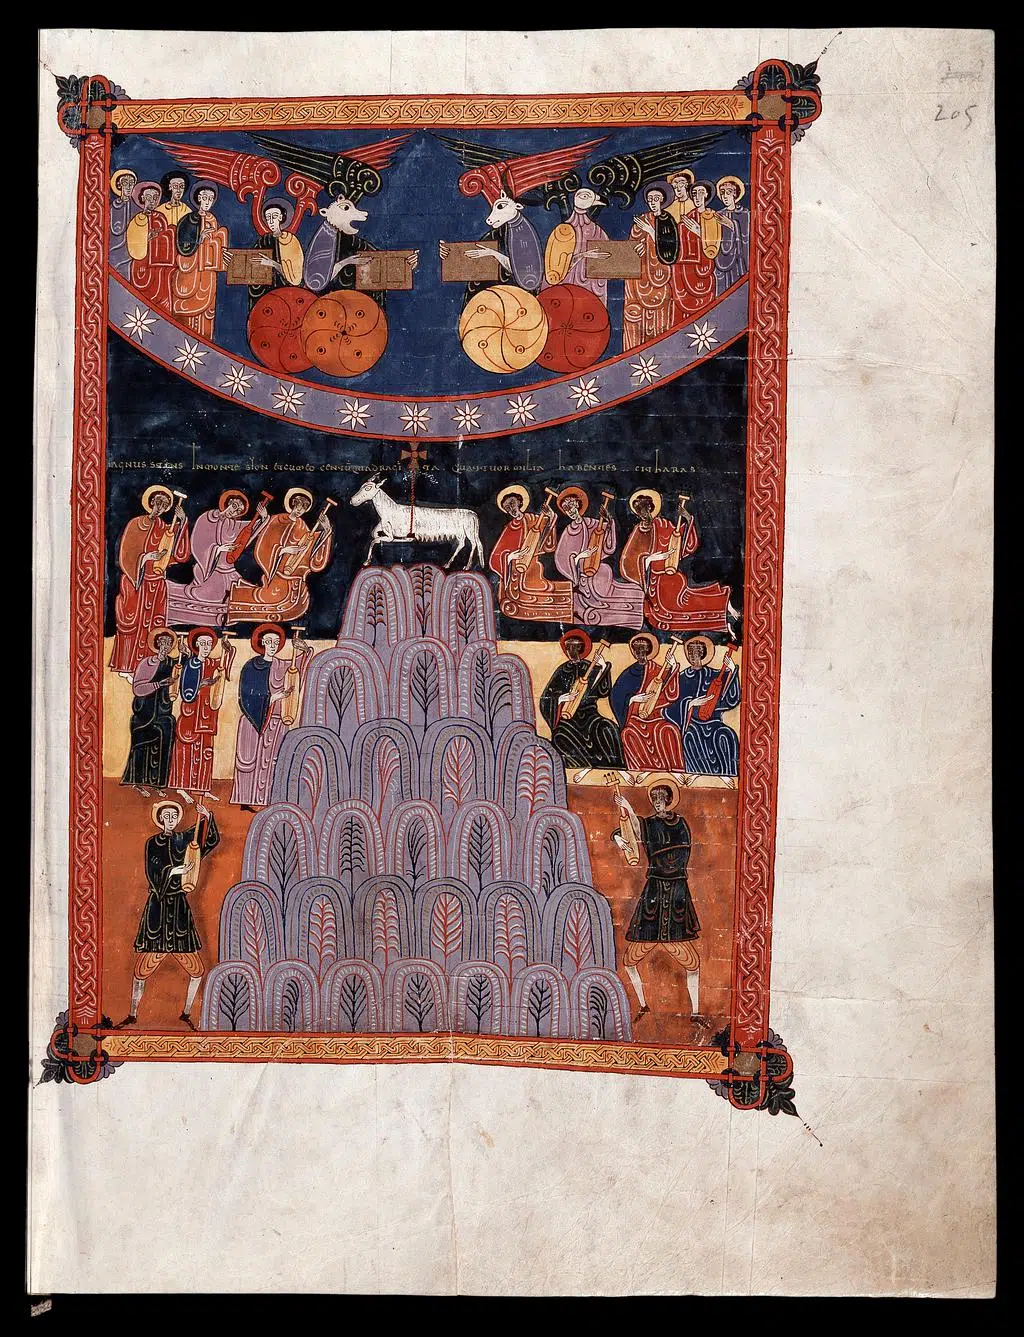 205
agnus stans In monte sion et cum eo centum quadraginta quattuor milia habentes citharas